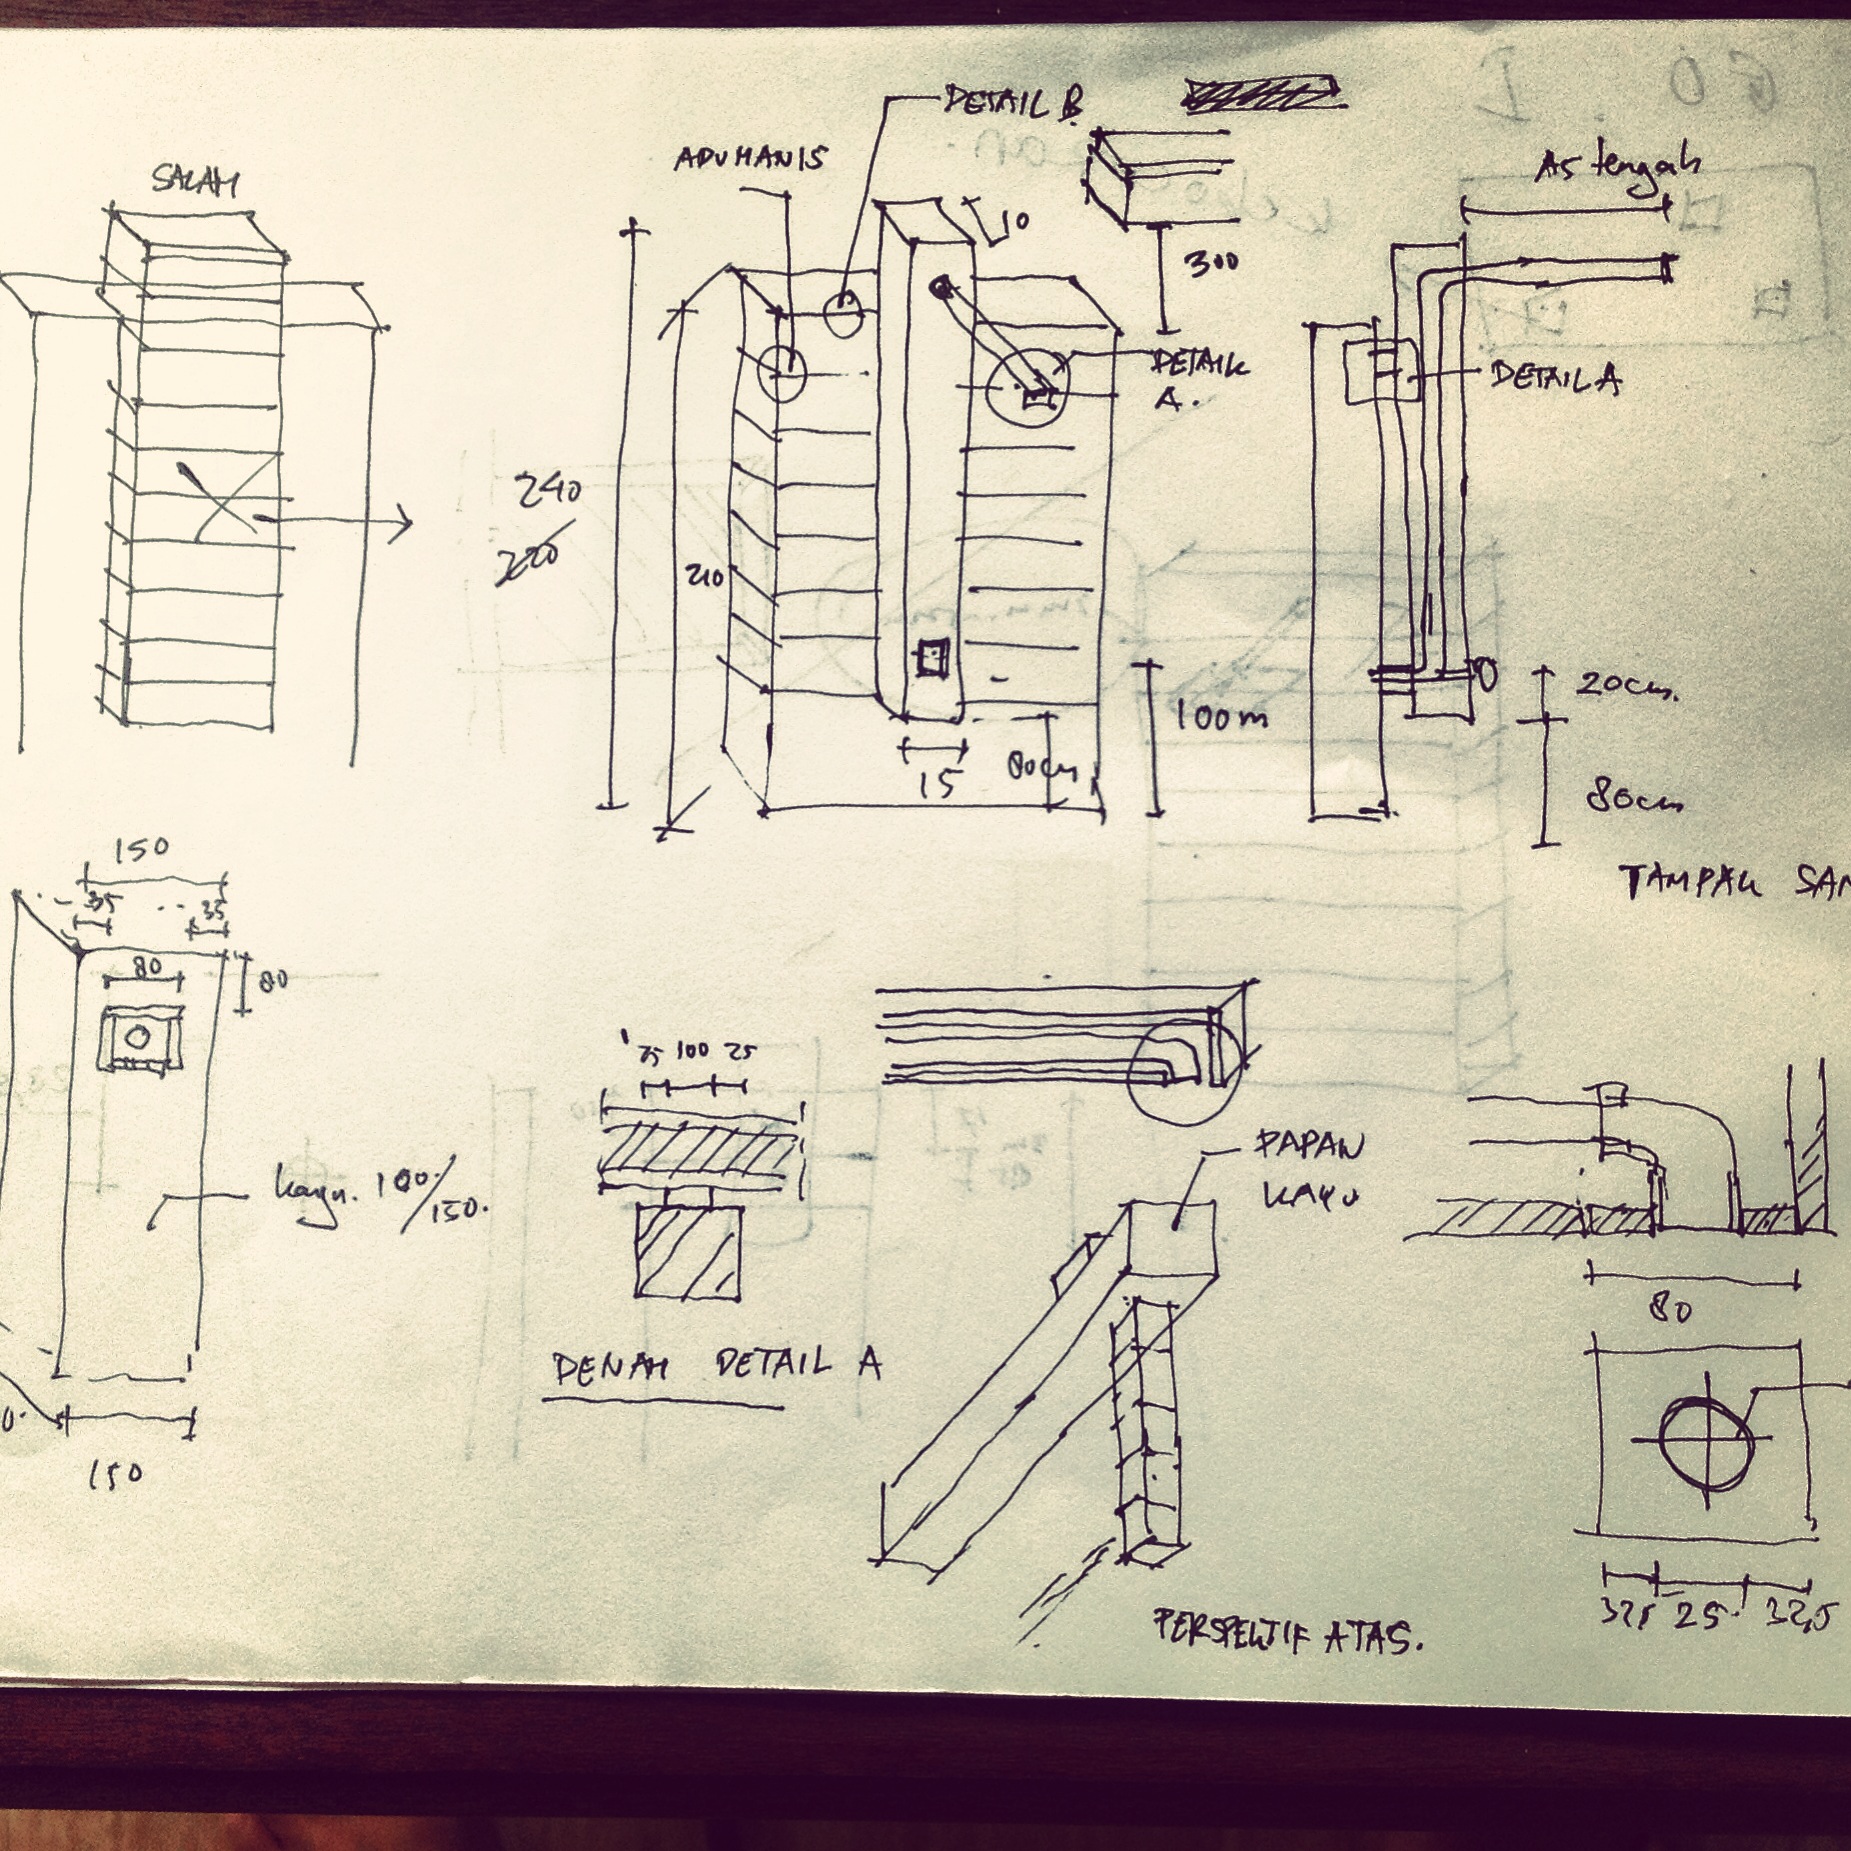 SALAH
DETAIL B.
ADUMANIS
10
300
As tengah
DETAIL
A.
DETAIL A
240
220
210
100m
15
80cm
20cm.
80cm
TAMPAK SAM
150
35
35
80
80
kayu. 100/150.
150
25 100 25
DENAH DETAIL A
PAPAN
KAYU
PERSPEKTIF ATAS.
80
32,5 25 32,5